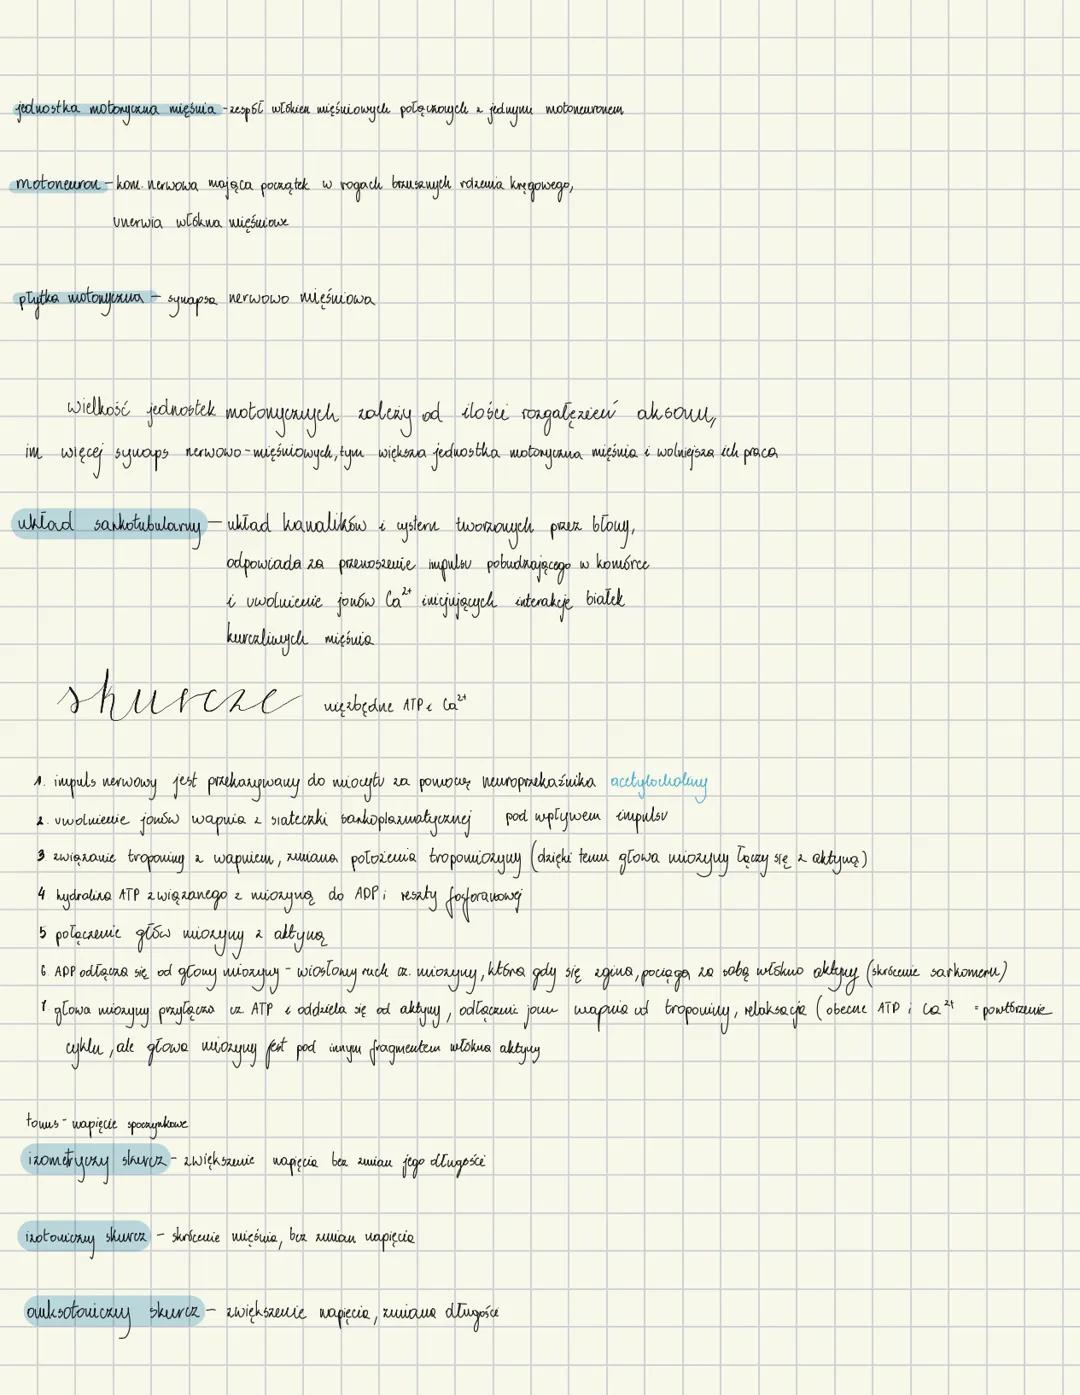 jednostka motoryczna mięśnia - zespół włókien mięśniowych połączonych z jednym motoneuronem
motoneuron - kom. nerwowa mająca początek w rogach brzusznych rdzenia kręgowego,
unerwia włókna mięśniowe
płytka motoryczna - synapsa nerwowo mięśniowa
wielkość jednostek motorycznych zależy od ilości rozgałęzień aksonu,
im więcej synaps nerwowo-mięśniowych, tym większa jednostka motoryczna mięśnia i wolniejsza ich praca
układ sarkotubularny - układ kanalików i cystern tworzonych przez błony,
odpowiada za przenoszenie impulsu pobudzającego w komórce
i uwolnienie jonów Ca²⁺ inicjujących interakcje białek
kurczliwych mięśnia
skurcze niezbędne ATP i Ca²⁺
1. impuls nerwowy jest przekazywany do miocytu za pomocą neuroprzekaźnika acetylocholiny
2. uwolnienie jonów wapnia z siateczki sarkoplazmatycznej pod wpływem impulsu
3 związanie troponiny z wapniem, zmiana położenia tropomiozyny (dzięki temu głowa miozyny łączy się z aktyną)
4. hydroliza ATP związanego z miozyną do ADP i reszty fosforanowej
5 połączenie głów miozyny z aktyną
6. ADP odłącza się od głowy miozyny - wiosłowy ruch cz. miozyny, która gdy się zgina, pociąga za sobą włókno aktyny (skrócenie sarkomeru)
7. głowa miozyny przyłącza cz. ATP i oddziela się od aktyny, odłączenie jonu wapnia od troponiny, relaksacja (obecne ATP i Ca²⁺ = powtórzenie
cyklu, ale głowa miozyny jest pod innym fragmentem włókna aktyny
tonus - napięcie spoczynkowe
izometryczny skurcz - zwiększenie napięcia bez zmian jego długości
izotoniczny skurcz - skrócenie mięśnia, bez zmian napięcia
auksotoniczny skurcz - zwiększenie napięcia, zmiana długości